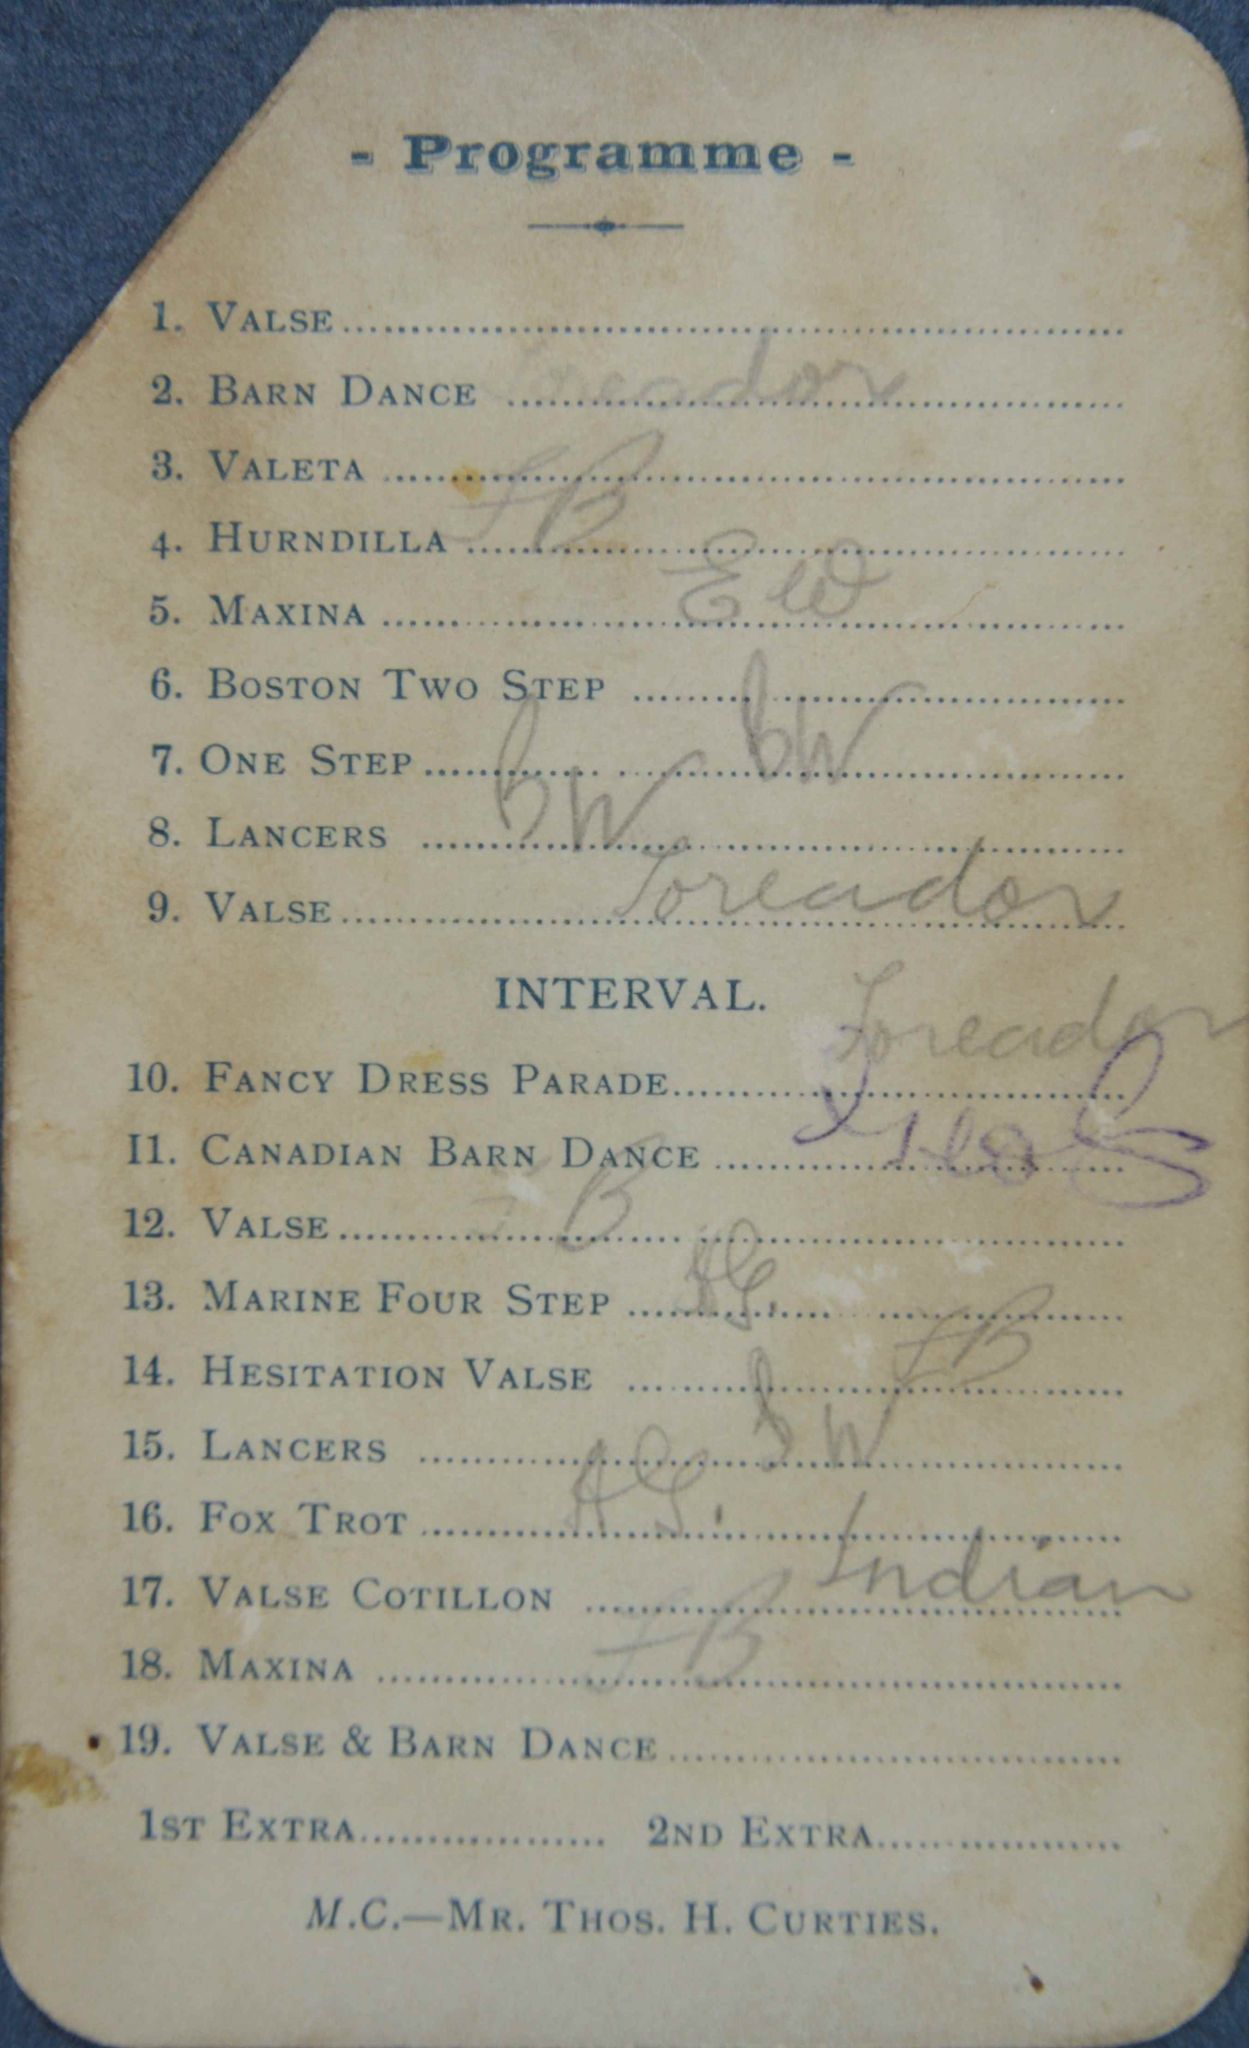 - Programme -
1. VALSE
Toreador
2. BARN DANCE
3. VALETA
FB
4. HURNDILLA
EW
5. MAXINA
6. BOSTON TWO STEP
bW
7. ONE STEP
bW
8. LANCERS
Toreador
9. VALSE
INTERVAL.
Toreador
10. FANCY DRESS PARADE
11. CANADIAN BARN DANCE
FB
12. VALSE
AG.
13. MARINE FOUR STEP
FB
14. HESITATION VALSE
W
15. LANCERS
AG.
16. FOX TROT
Indian
17. VALSE COTILLON
FB
18. MAXINA
19. VALSE & BARN DANCE
1ST EXTRA 2ND EXTRA
M.C.—MR. THOS. H. CURTIES.